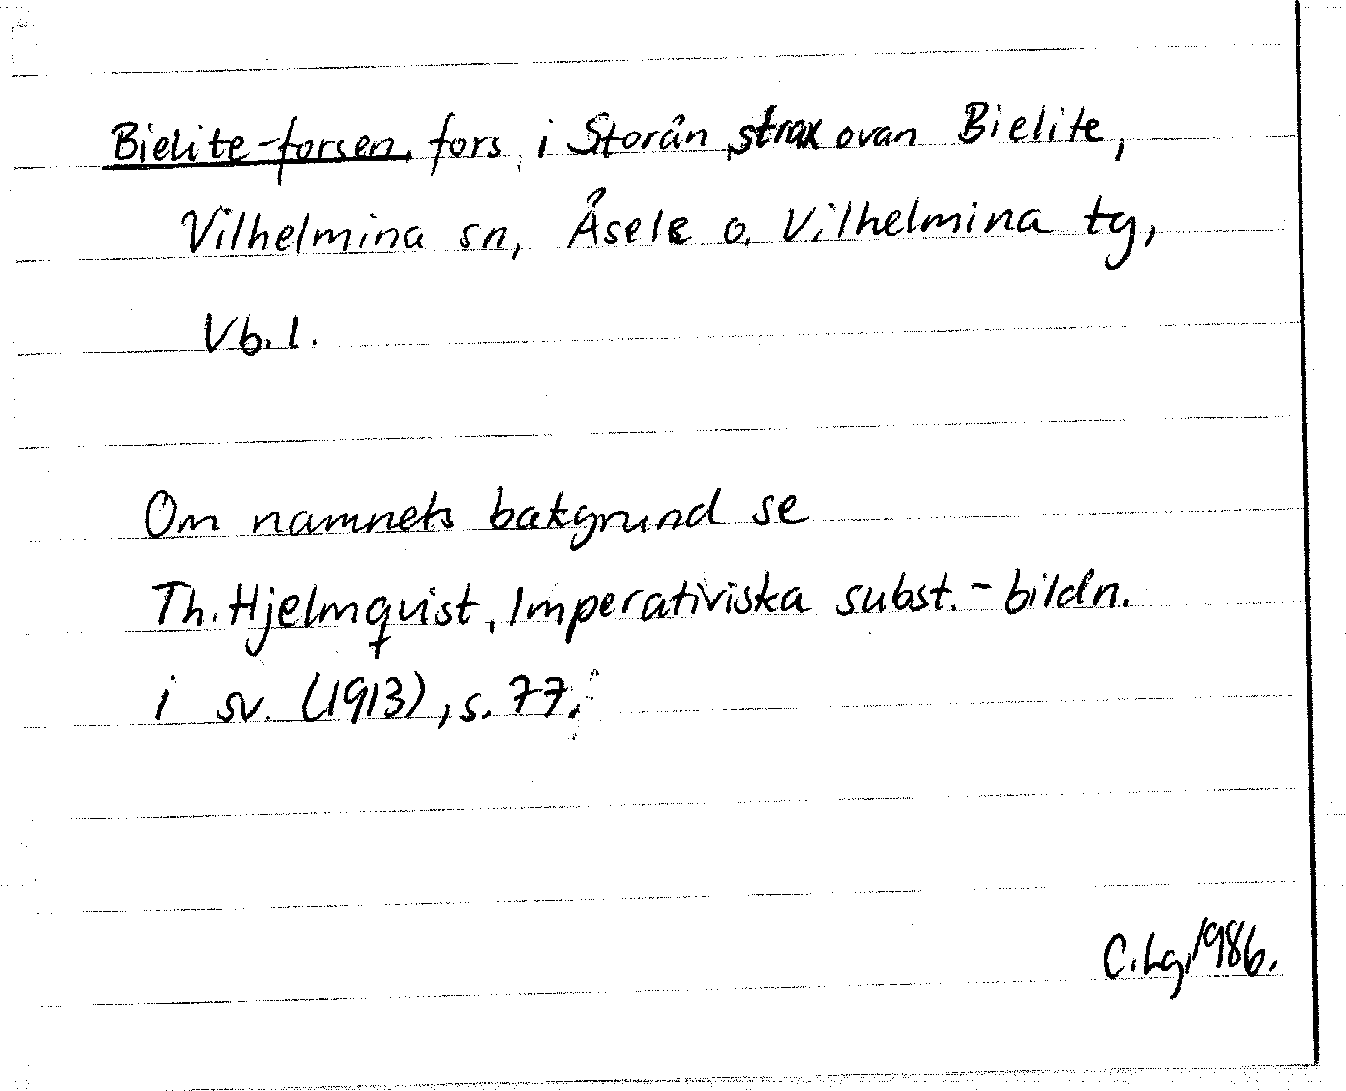 Bielite-forsen, fors i Storån strax ovan Bielite,
Vilhelmina sn, Åsele o. Vilhelmina tg,
Vb. l.
Om namnets bakgrund se
Th. Hjelmqvist, Imperativiska subst.-bildn.
i sv. (1913), s. 77.
C. Lg, 1986.